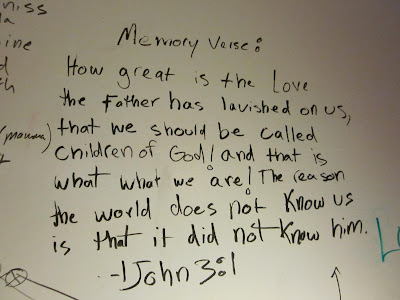 niss
Memory Verse:
How great is the Love
the Father has lavished on us,
that we should be called
children of God! and that is
what what we are! The reason
the world does not know us
is that it did not know him.
-1John 3:1